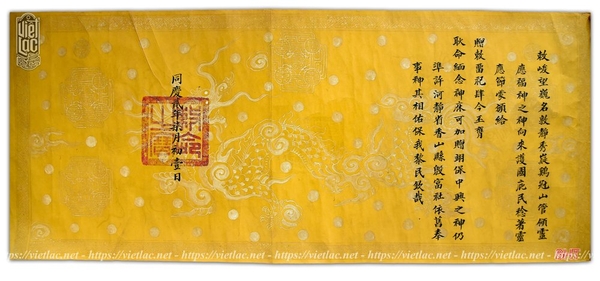 敕峻望巍名敦靜秀嶷鷄冠山管領靈
應之神向來護國庇民稔著靈
應節蒙頒給
贈敕畱祀肆今丕膺
耿命緬念神庥可加贈翊保中興之神仍
準許河靜省香山縣富社依舊奉
事神其相佑保我黎民欽哉
同慶貳年柒月初壹日
敕命之寶
viet
lạc
https://vietlac.net - https://vietlac.net - https://vietlac.net - https://vietlac.net - https://vietlac.net